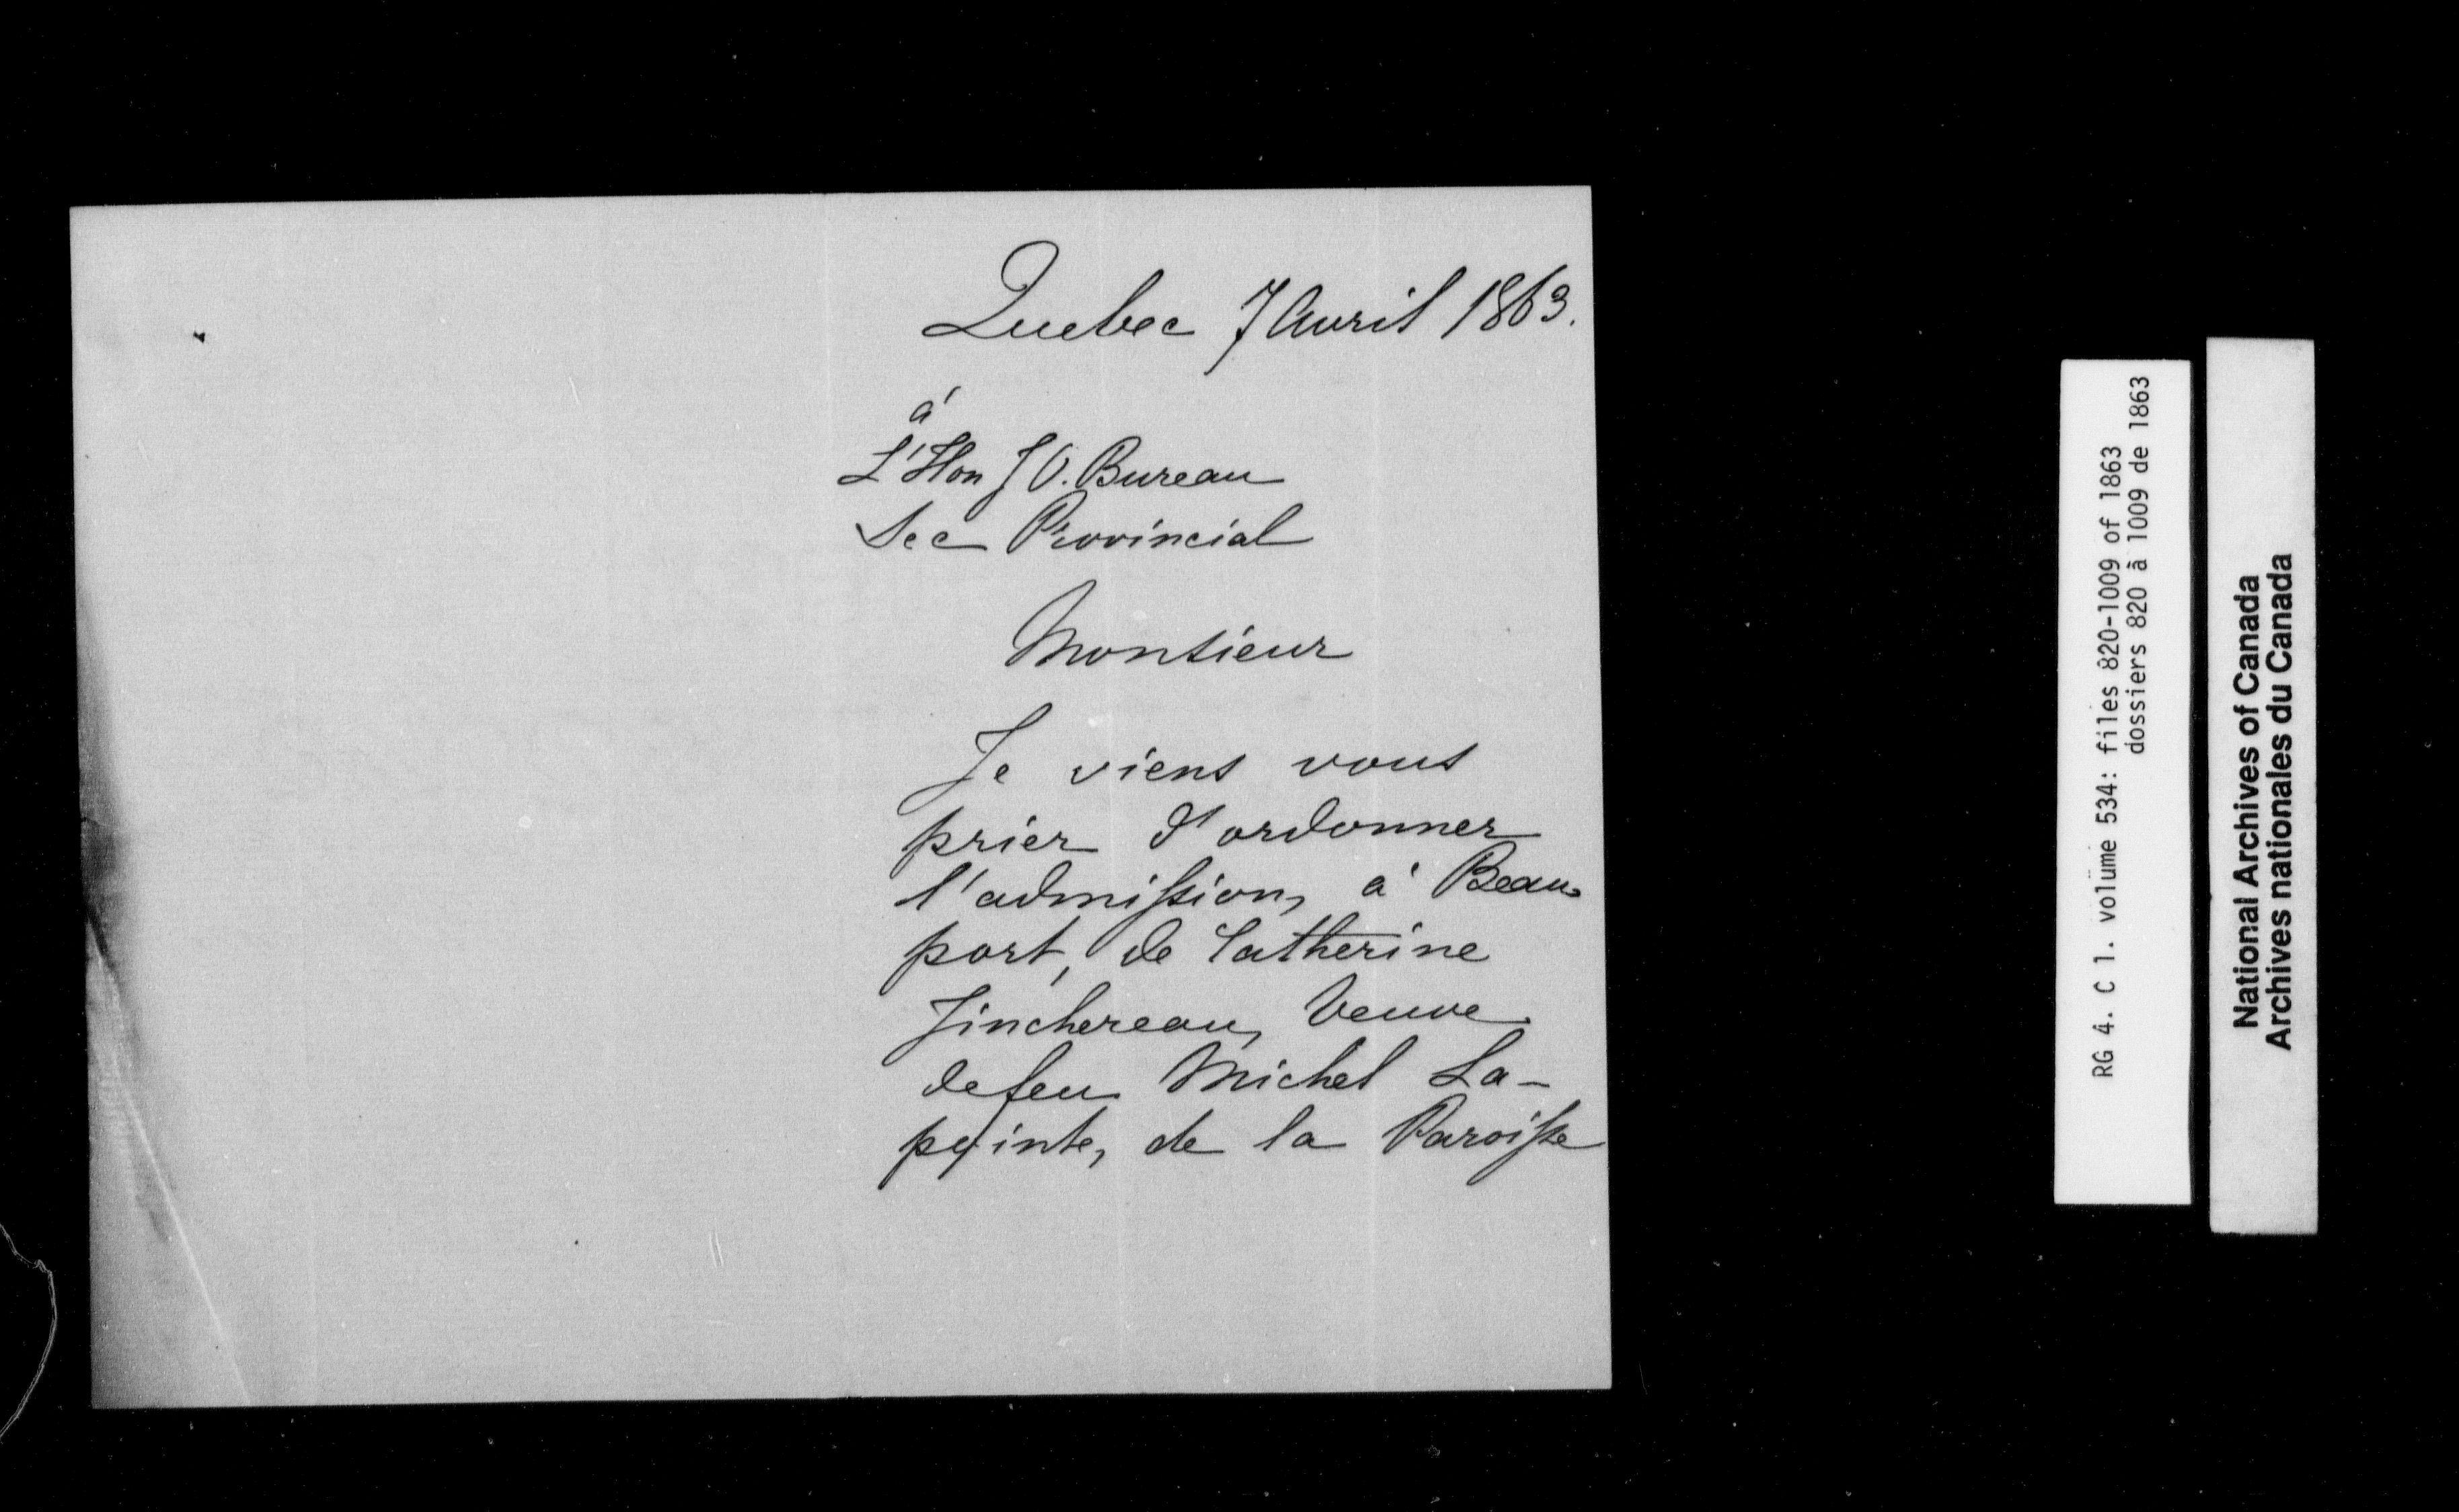 Quebec 7 Avril 1863.
à
L'Hon J O. Bureau
Sec Provincial
Monsieur
Je viens vous
prier d'ordonner
l'admission, à Beau-
port, de Catherine
Jinchereau, Veuve
de feu Michel La-
pointe, de la Paroisse
RG 4. C 1. volume 534: files 820-1009 of 1863
dossiers 820 à 1009 de 1863
National Archives of Canada
Archives nationales du Canada